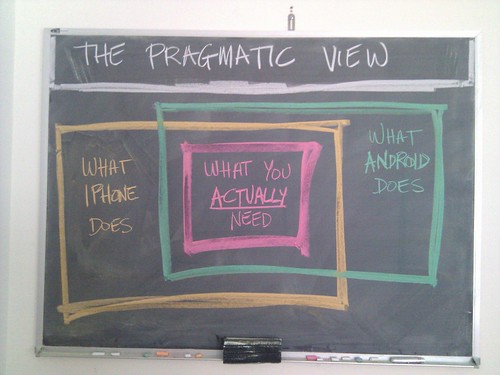 THE PRAGMATIC VIEW
WHAT
IPHONE
DOES
WHAT YOU
ACTUALLY
NEED
WHAT
ANDROID
DOES